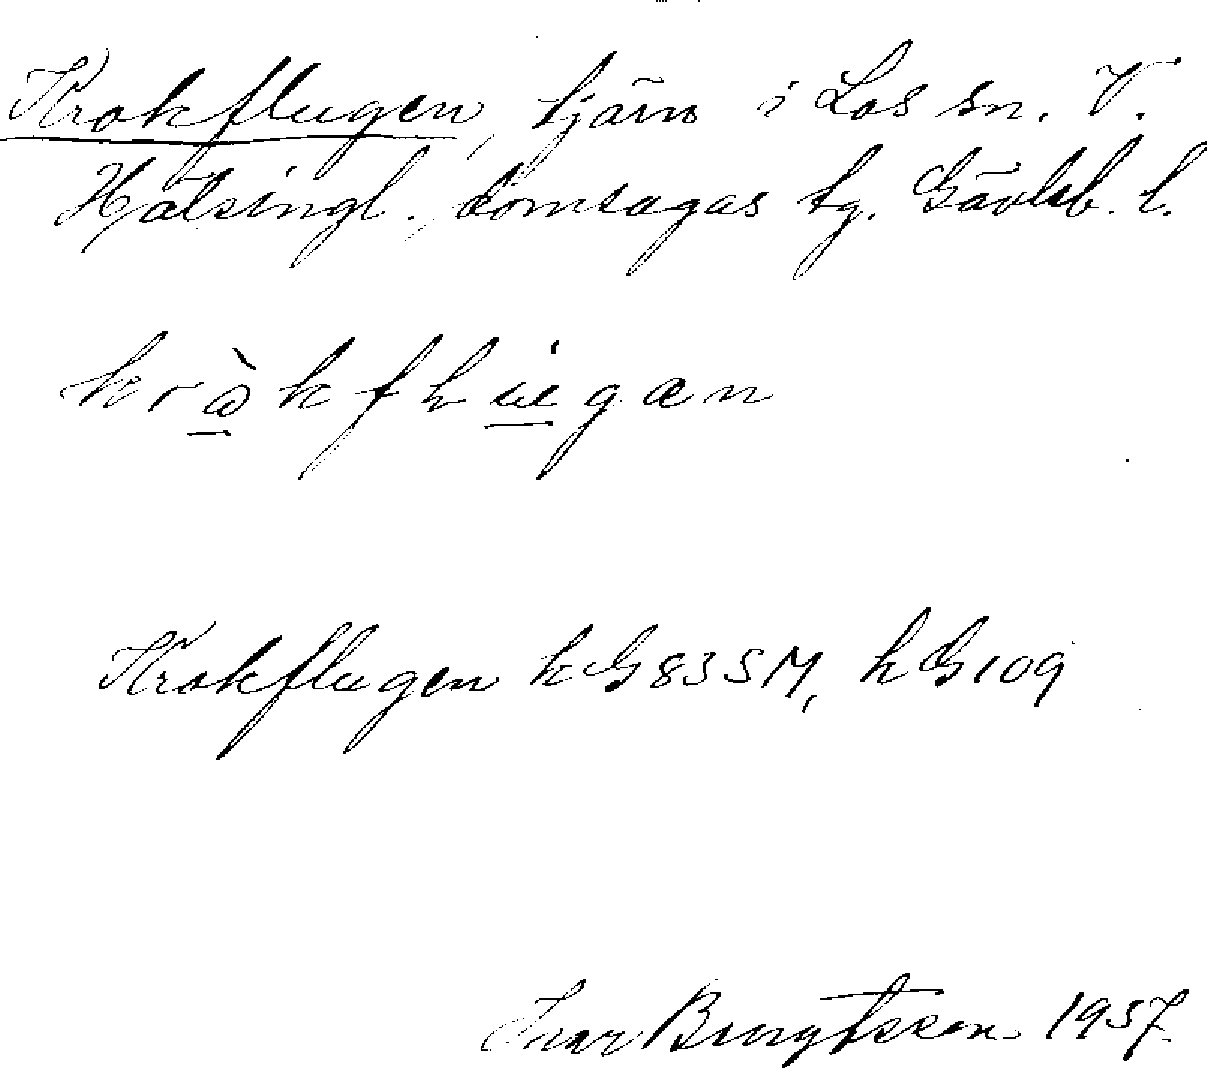 Krokflugen, tjärn i Los sn. V.
Hälsingl. domsagas tg. Gävleb. l.
Krokflugen kG 83 SM, hG 109
Ivar Bengtsson 1957